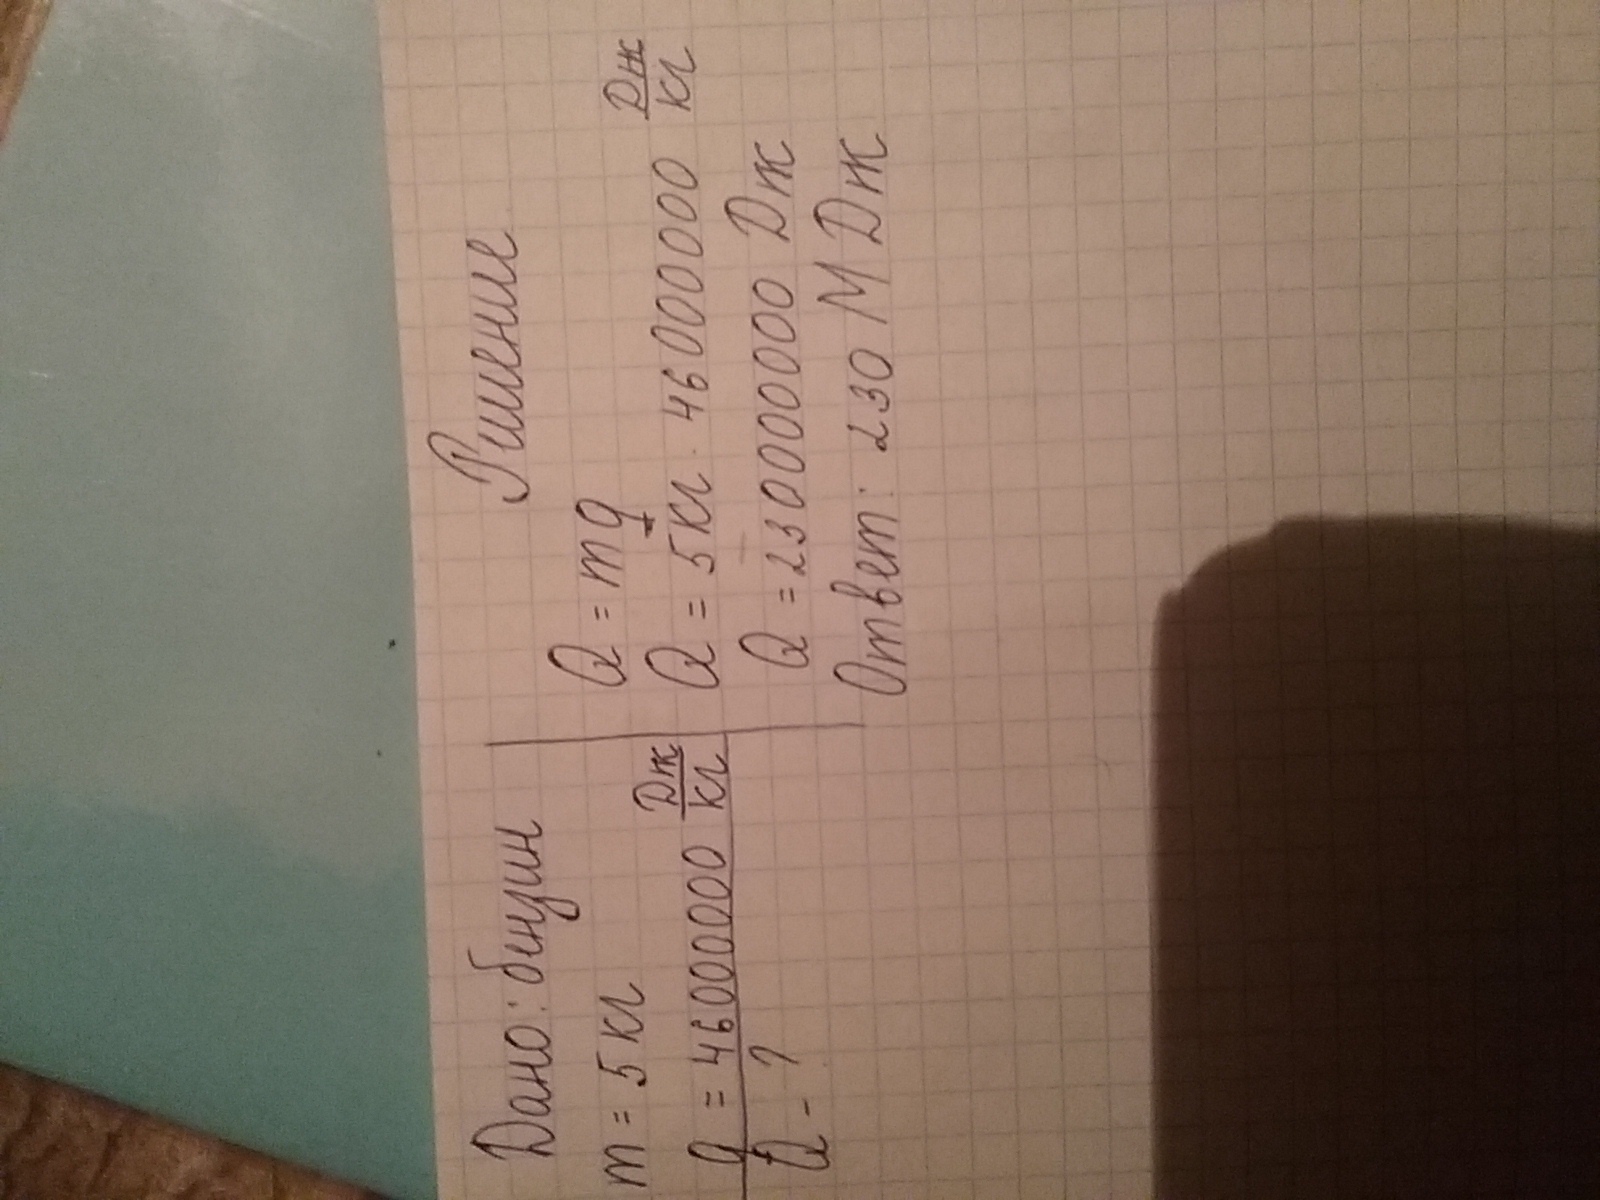 Дано: бензин
m = 5 кг
q = 46000000 Дж/кг
Q - ?
Решение
Q = mq
Q = 5 кг · 46000000 Дж/кг
Q = 230000000 Дж
Ответ: 230 М Дж